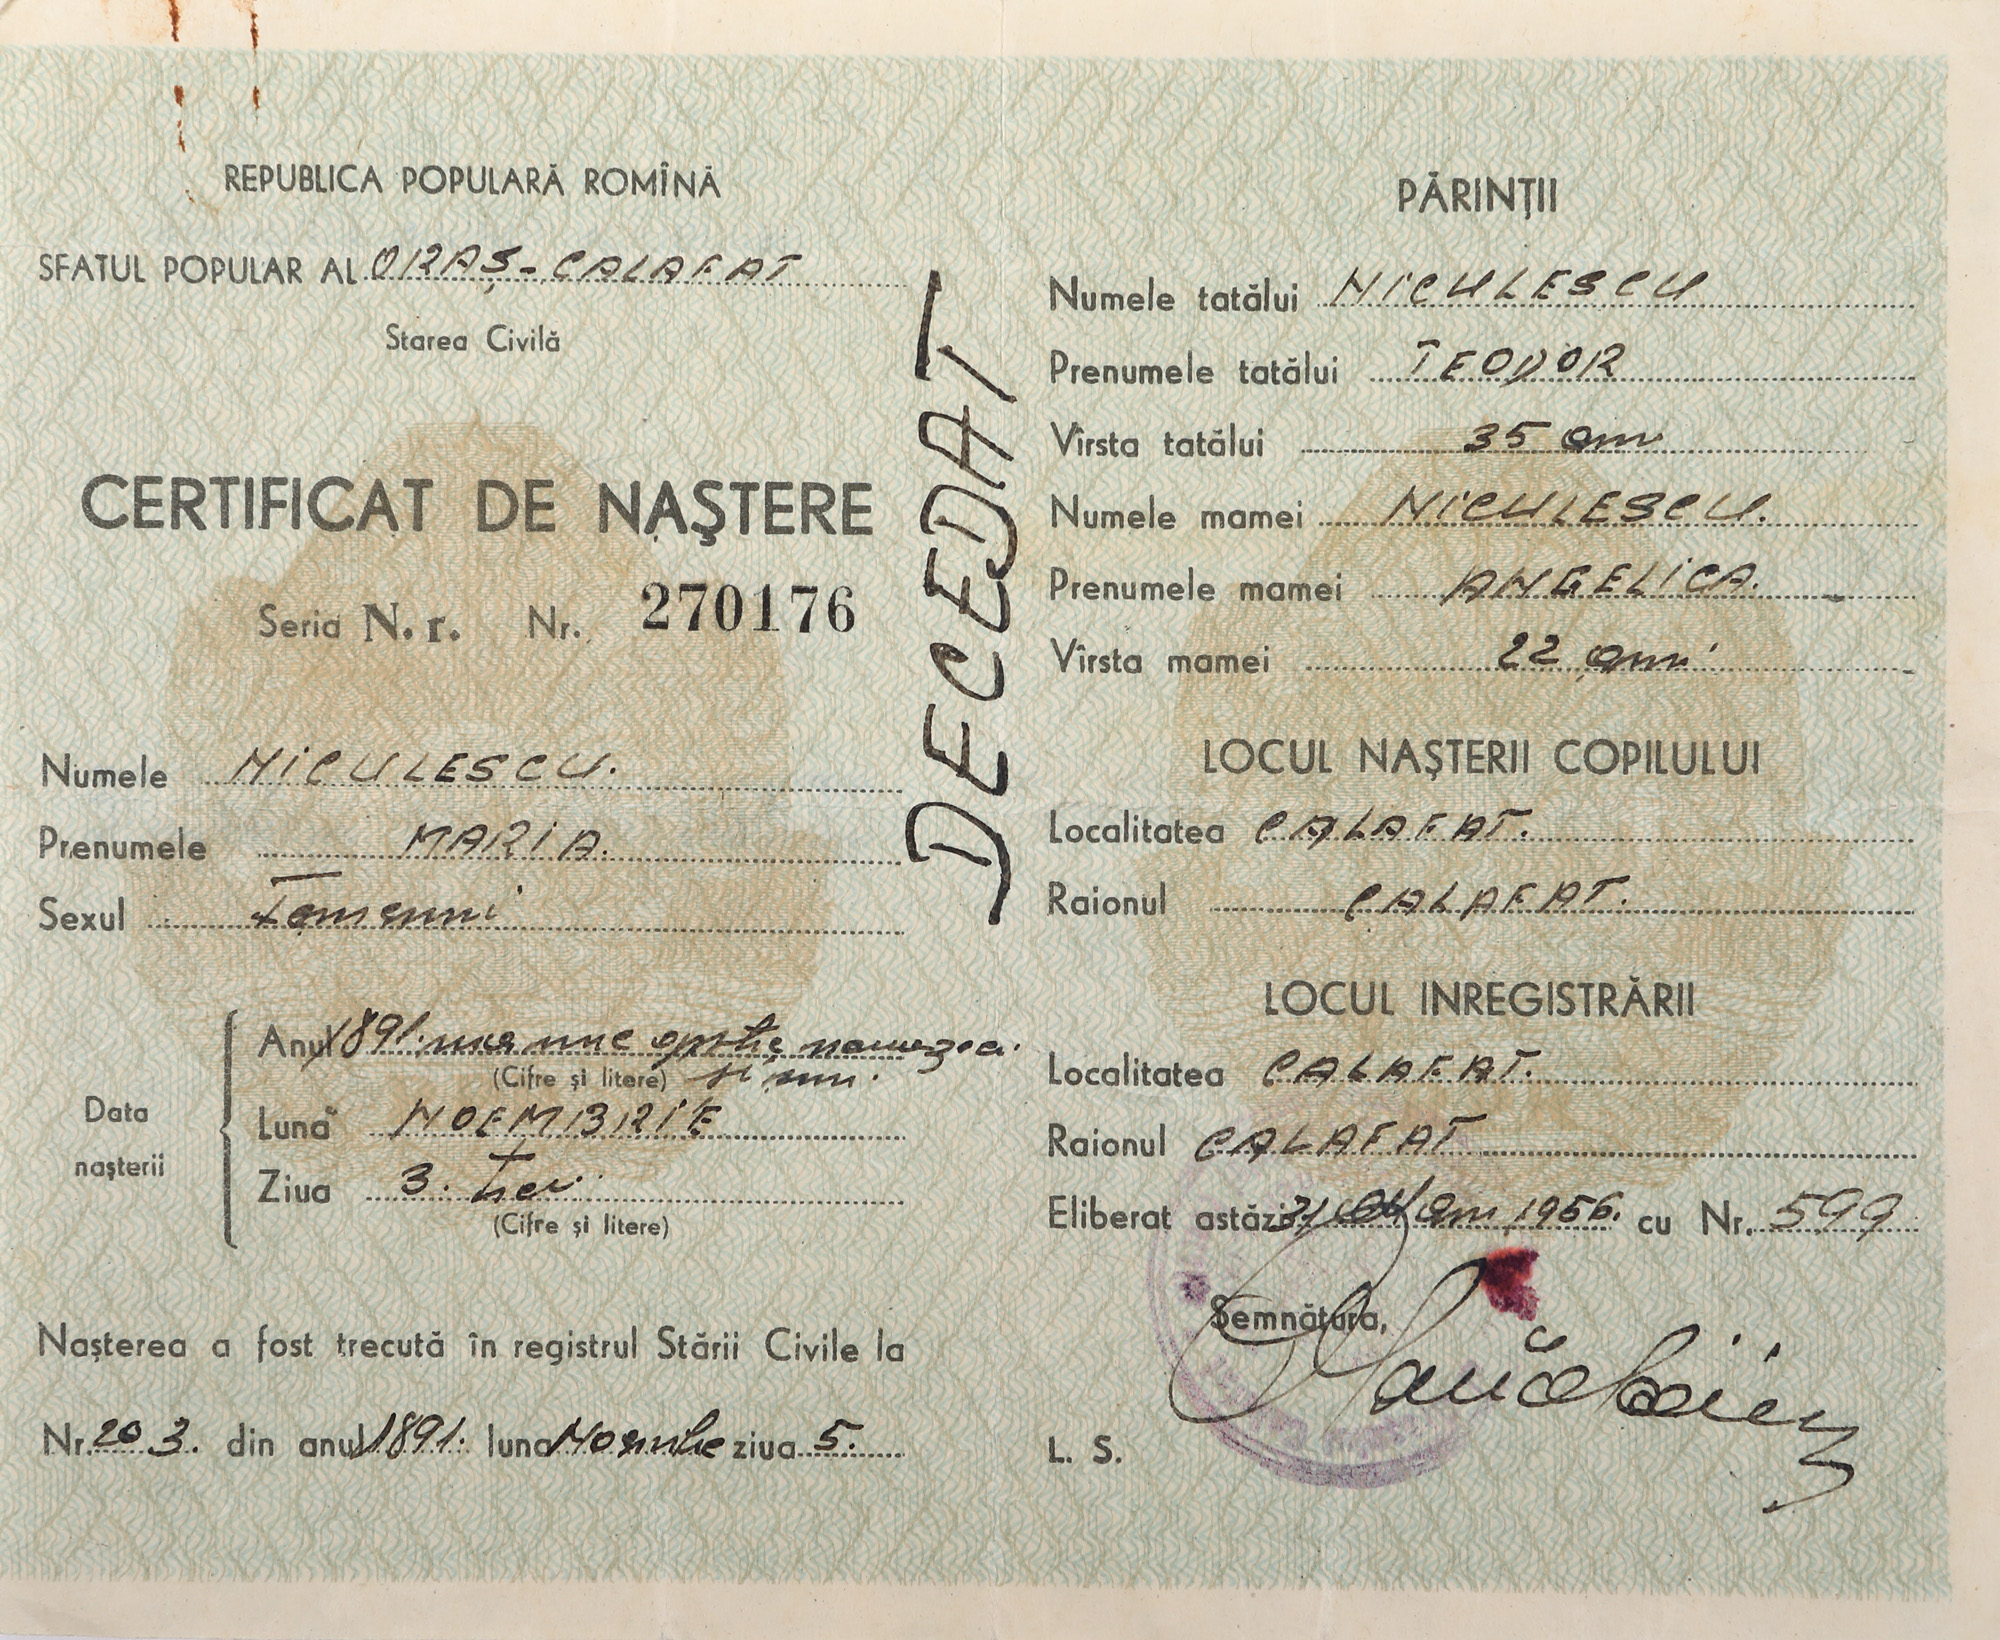 REPUBLICA POPULARĂ ROMÎNĂ
SFATUL POPULAR AL ORAȘ-CALAFAT
Starea Civilă
CERTIFICAT DE NAŞTERE
Seria N. r. Nr. 270176
Numele NICULESCU.
Prenumele MARIA.
Sexul Femenin
Data nașterii
Anul 1891. una mie opt sute nouăzeci
(Cifre și litere) și unu.
Luna NOEMBRIE
Ziua 3. trei.
(Cifre și litere)
Nașterea a fost trecută în registrul Stării Civile la
Nr. 203. din anul 1891. luna Noembrie ziua 5.
DECEDAT
PĂRINȚII
Numele tatălui NICULESCU
Prenumele tatălui TEODOR
Vîrsta tatălui 35 ani
Numele mamei NICULESCU.
Prenumele mamei ANGELICA.
Vîrsta mamei 22 ani
LOCUL NAȘTERII COPILULUI
Localitatea CALAFAT.
Raionul CALAFAT.
LOCUL INREGISTRĂRII
Localitatea CALAFAT.
Raionul CALAFAT
Eliberat astăzi 1956. cu Nr. 599
Semnătura,
L. S.